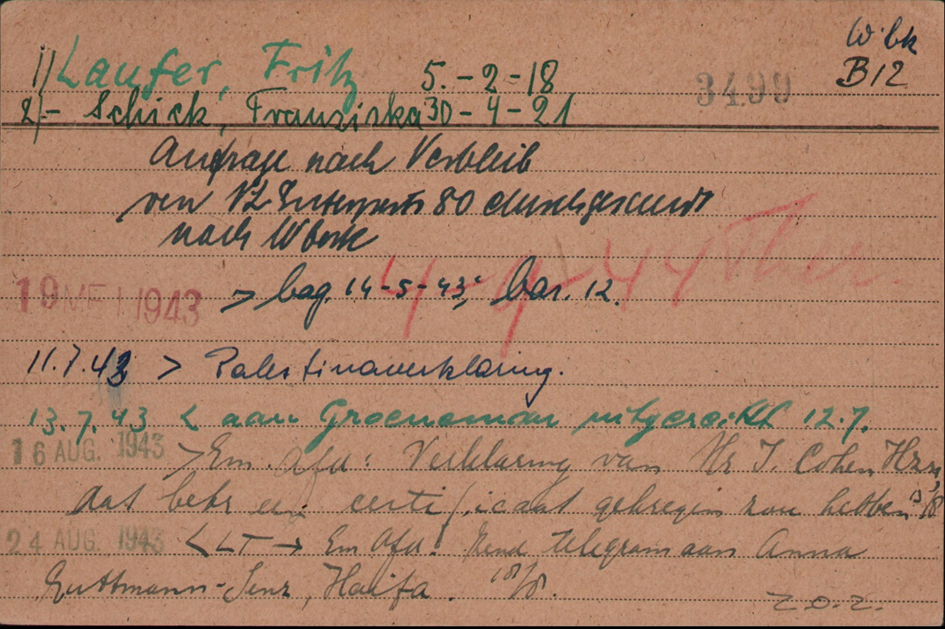 W'bk
1) Laufer, Fritz 5.-2-18 3499 B12
2/- Schick, Franziska 30-4-21
Anfrage nach Verbleib
von 80 durchgesandt
nach Wbork
19 MEI 1943 > bag. 14-5-43, bar. 12.
4-9-44 Ther.
11.7.43 > Palestinaverklaring.
13.7.43 < aan Groeneman uitgereikt 12.7.
16 AUG. 1943 > Em Afd: Verklaring van Hr I. Cohen
dat betr een certificaat gekregen zou hebben
24 AUG. 1943 < LT → Em Afd: Zend telegram aan Anna
Guttmann-Senz, Haifa. 18/8.
z.o.z.